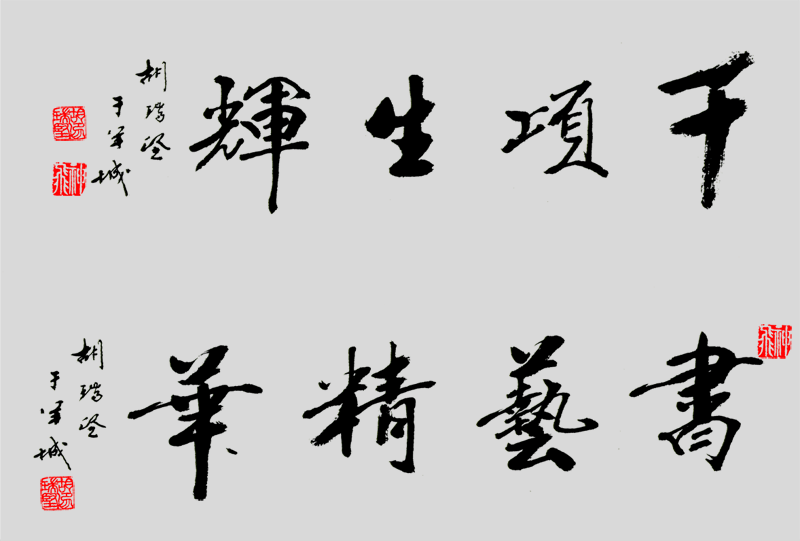 千項生輝
胡瑞坚
于羊城
書藝精華
胡瑞坚
于羊城